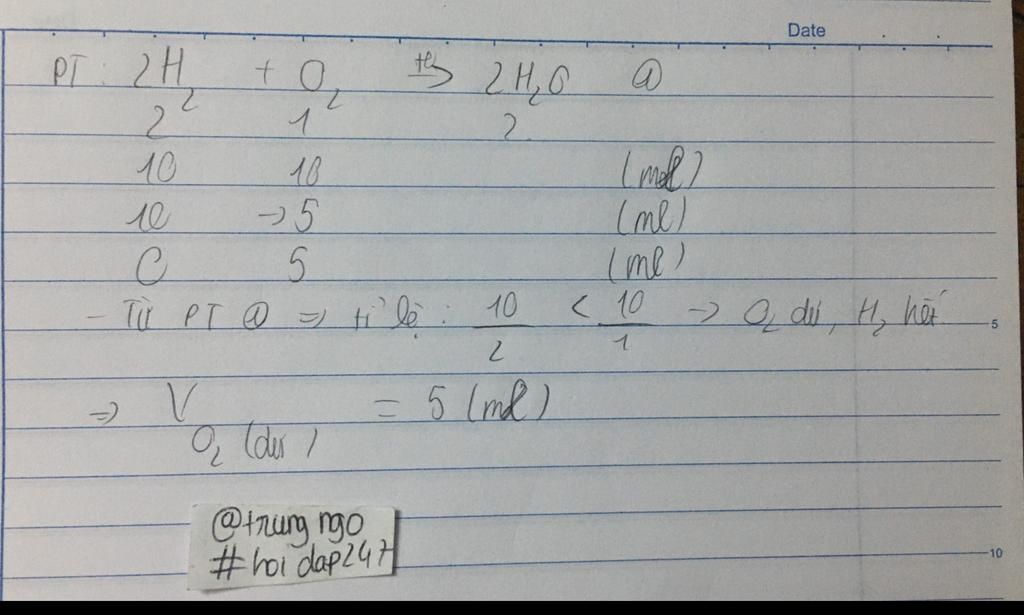 Date
PT: 2H₂ + O₂ t° → 2H₂O @
2 1 2
10 10 (ml)
10 → 5 (ml)
0 5 (ml)
- Từ PT @ => tỉ lệ: 10/2 < 10/1 → O₂ dư, H₂ hết
5
=> V O₂ (dư) = 5 (ml)
@trung ngo
#hoi dap247
10